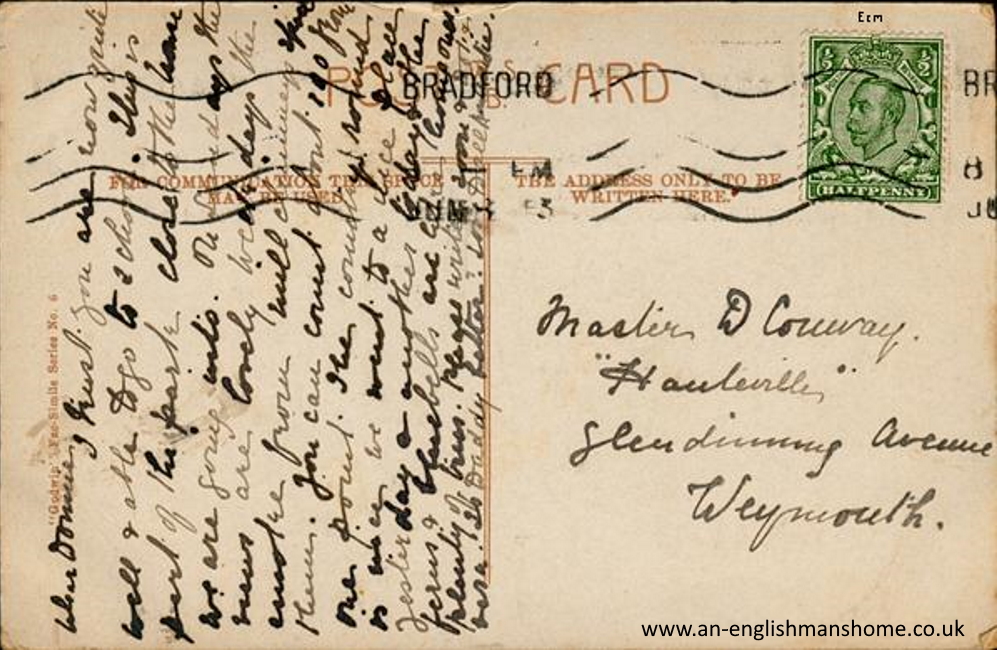 Ecm
POST CARD
BRADFORD
BR
PM
8
JU
HALFPENNY
FOR COMMUNICATION THIS SPACE
MAY BE USED
THE ADDRESS ONLY TO BE
WRITTEN HERE."
"Godwin" Fac-Simile Series No. 6
Master D Conway.
"Hauteville"
Glendinning Avenue
Weymouth.
Dear Donnie
I trust you are now quite
well & able to go to school. This is
part of the park close to the house
we are going into. On Sundays the
views are lovely week days the
smoke from mill chimneys
them. You can count about 190 from
one point. The country round
is nice we went to a place
yesterday & another today the
ferns & bluebells are
plenty of trees. Please write soon
Daddy better?
www.an-englishmanshome.co.uk